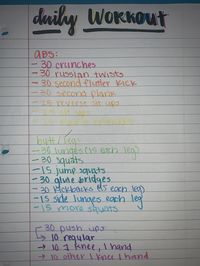 daily Workout
abs:
- 30 crunches
- 30 russian twists
- 30 second flutter kick
- 30 second plank
- 15 reverse sit ups
butt/legs:
- 30 lunges (15 each leg)
- 30 squats
- 15 jump squats
- 30 glute bridges
- 30 kickbacks (15 each leg)
- 15 side lunges each leg
- 15 more squats
30 push ups
→ 10 regular
→ 10 1 knee, 1 hand
→ 10 other 1 knee 1 hand